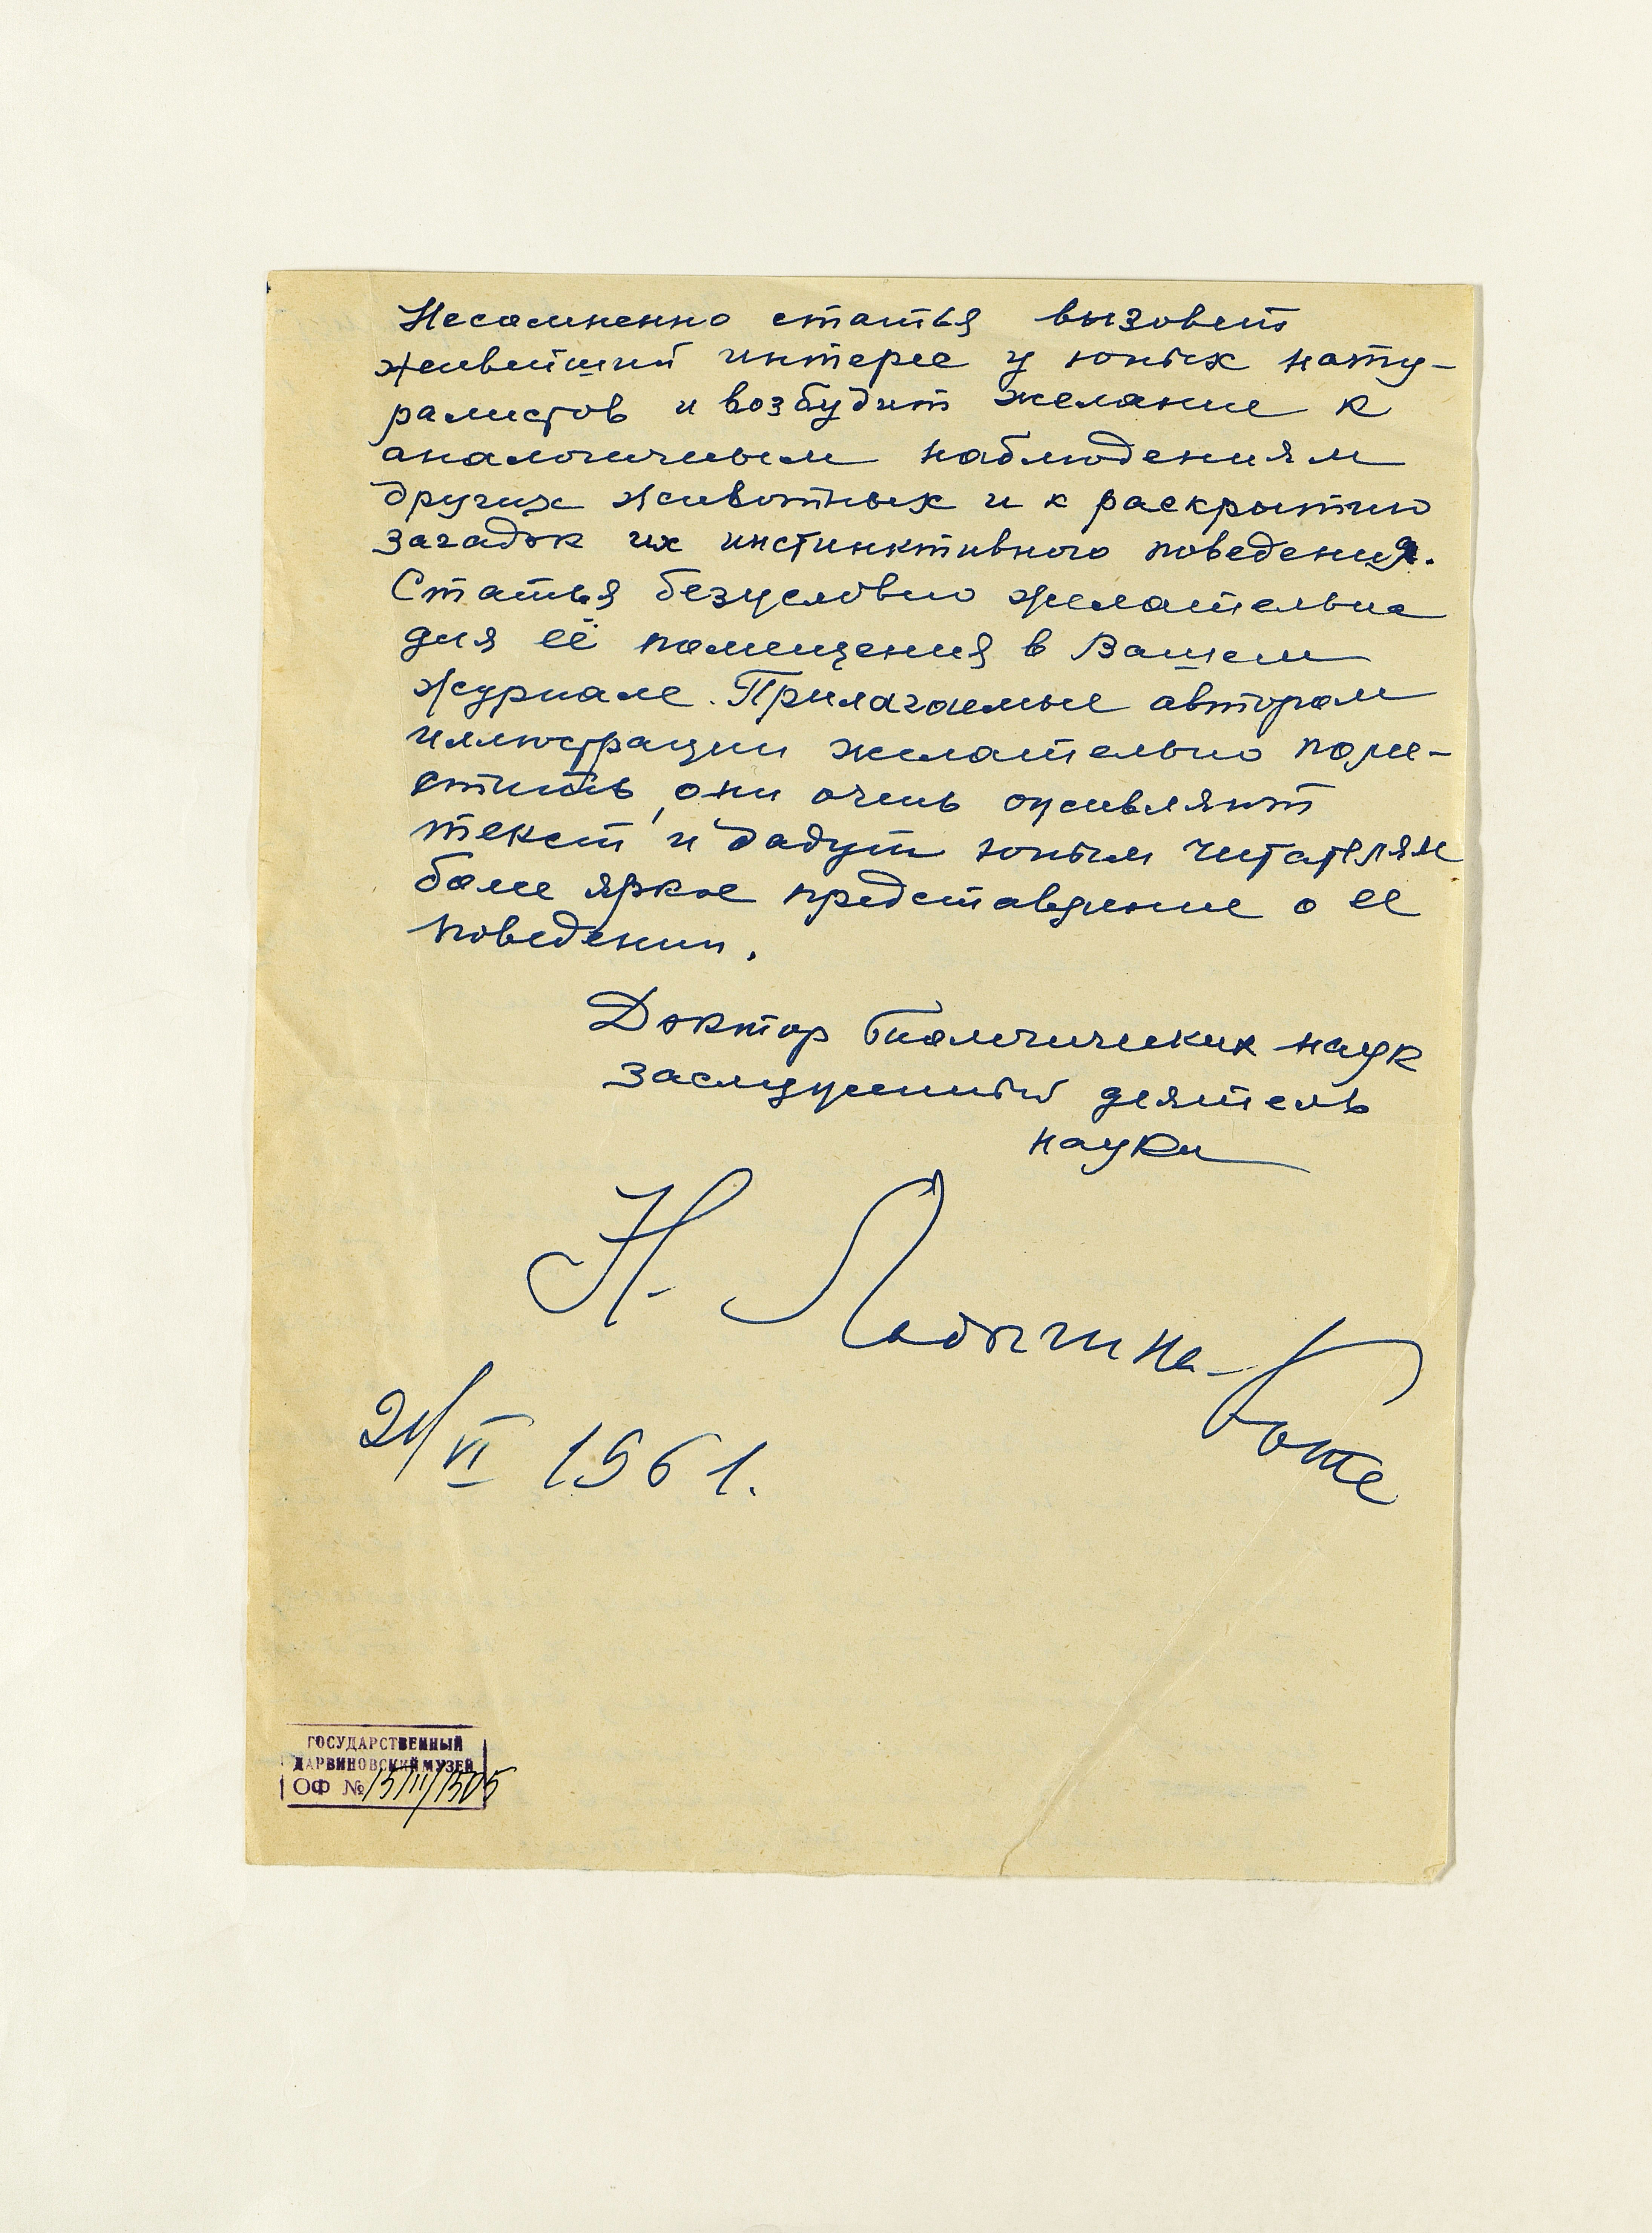 Несомненно статья вызовет
живейший интерес у юных нату-
ралистов и возбудит желание к
аналогичным наблюдениям
других животных и к раскрытию
загадок их инстинктивного поведения.
Статья безусловно желательна
для её помещения в Вашем
журнале. Прилагаемые автором
иллюстрации желательно поме-
стить, они очень оживляют
текст и дадут юным читателям
более яркое представление о ее
поведении.
Доктор биологических наук
заслуженный деятель
науки
Н. Ладыгина-Котс
21/VI 1961.
ГОСУДАРСТВЕННЫЙ
ДАРВИНОВСКИЙ МУЗЕЙ
ОФ №